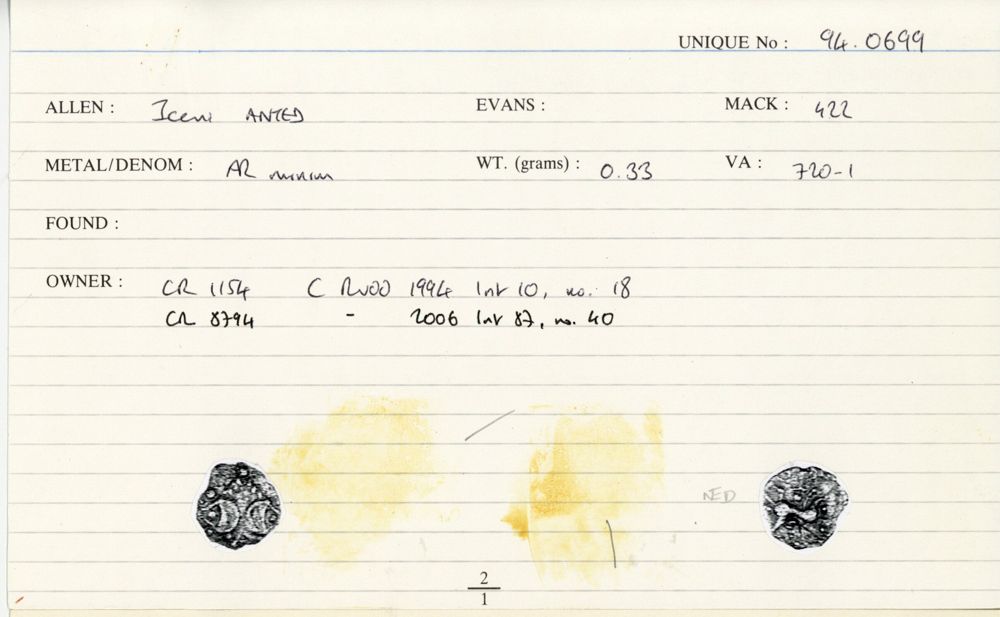 UNIQUE No : 94.0699
ALLEN : Iceni ANTED EVANS : MACK : 422
METAL/DENOM : AR minim WT. (grams) : 0.33 VA : 720-1
FOUND :
OWNER : CR 1154 C Rudd 1994 list 10, no. 18
CR 8794 - 2006 list 87, no. 40
NED
2
1